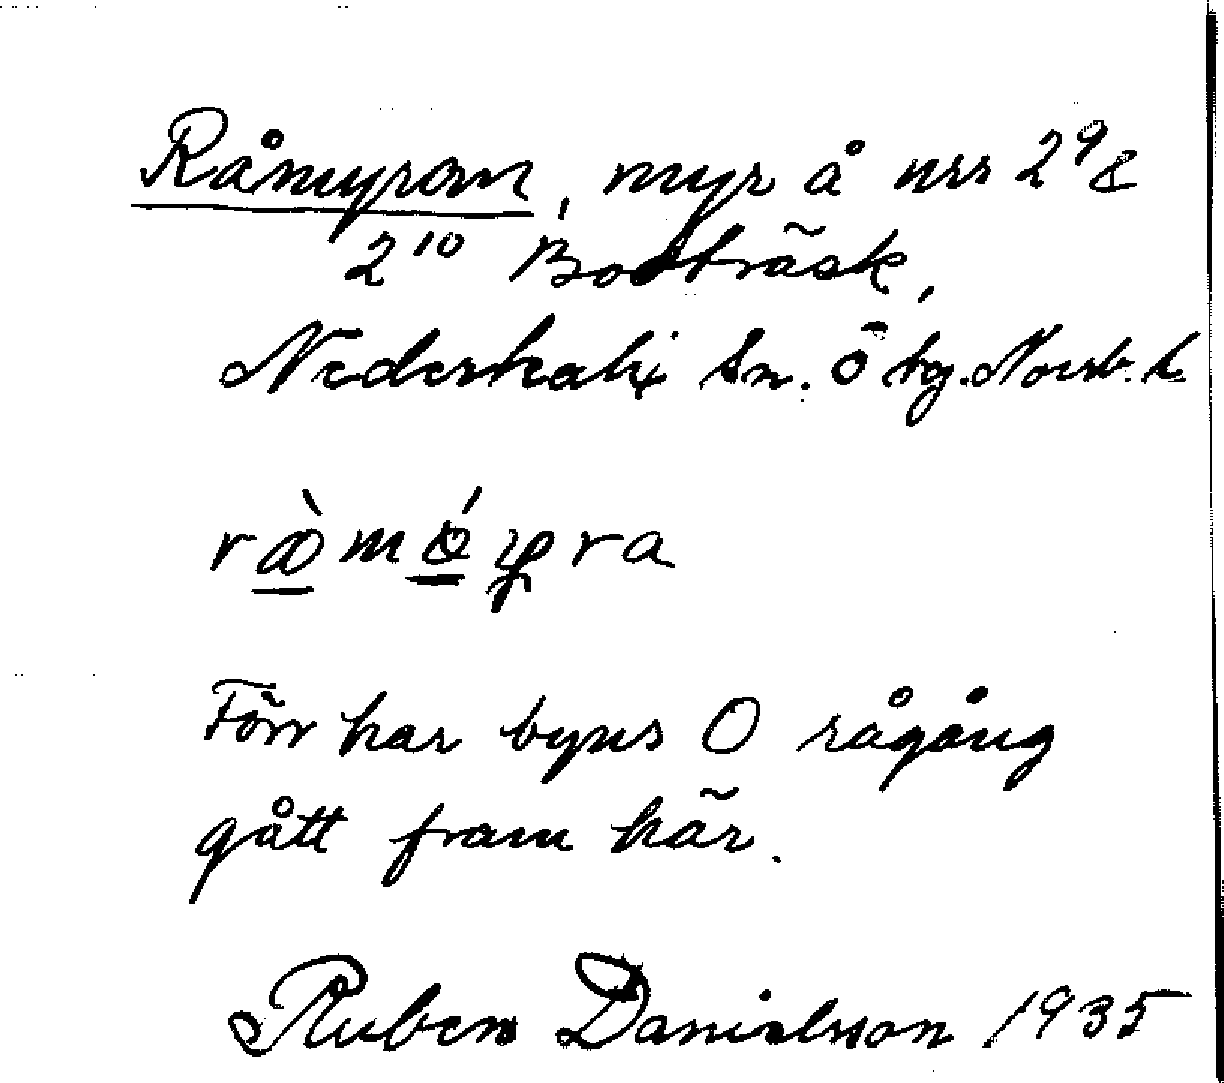 Råmyran, myr å nrs 2⁹ &
2¹⁰ Bodträsk,
Nederkalix Sn. Ö tg. Norrb. l.
Förr har byns O rågång
gått fram här.
Ruben Danielsson 1935